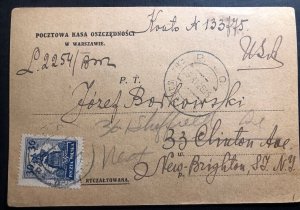 POCZTOWA KASA OSZCZĘDNOŚCI
W WARSZAWIE.
Konto A 133775
L. 2254/
USA
P. T.
Józef Borkowski
33 Clinton Ave
New-Brighton, S.I. N.Y.
POCZTA POLSKA
RYCZAŁTOWANA.